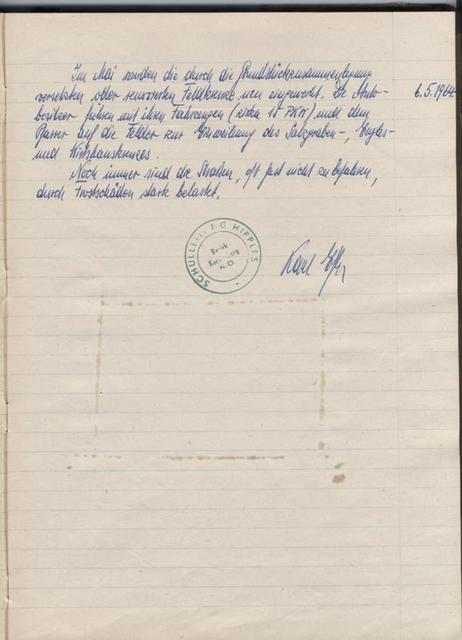 Im Mai wurden die durch die Grundstückzusammenlegung
versetzten oder renovierten Feldkreuze neu eingeweiht. Die Auto-
6.5.1964
besitzer fuhren mit ihren Fahrzeugen (zirka 15 PKW) und dem
Pfarrer auf die Felder zur Einweihung des Salzgraben-,
und Wirtshauskreuzes.
Noch immer sind die Straßen, oft fast nicht zu befahren,
durch Frostschäden stark belastet.
SCHULLEITUNG HIPPLES
Bezirk
Korneuburg
N.Ö.
Karl